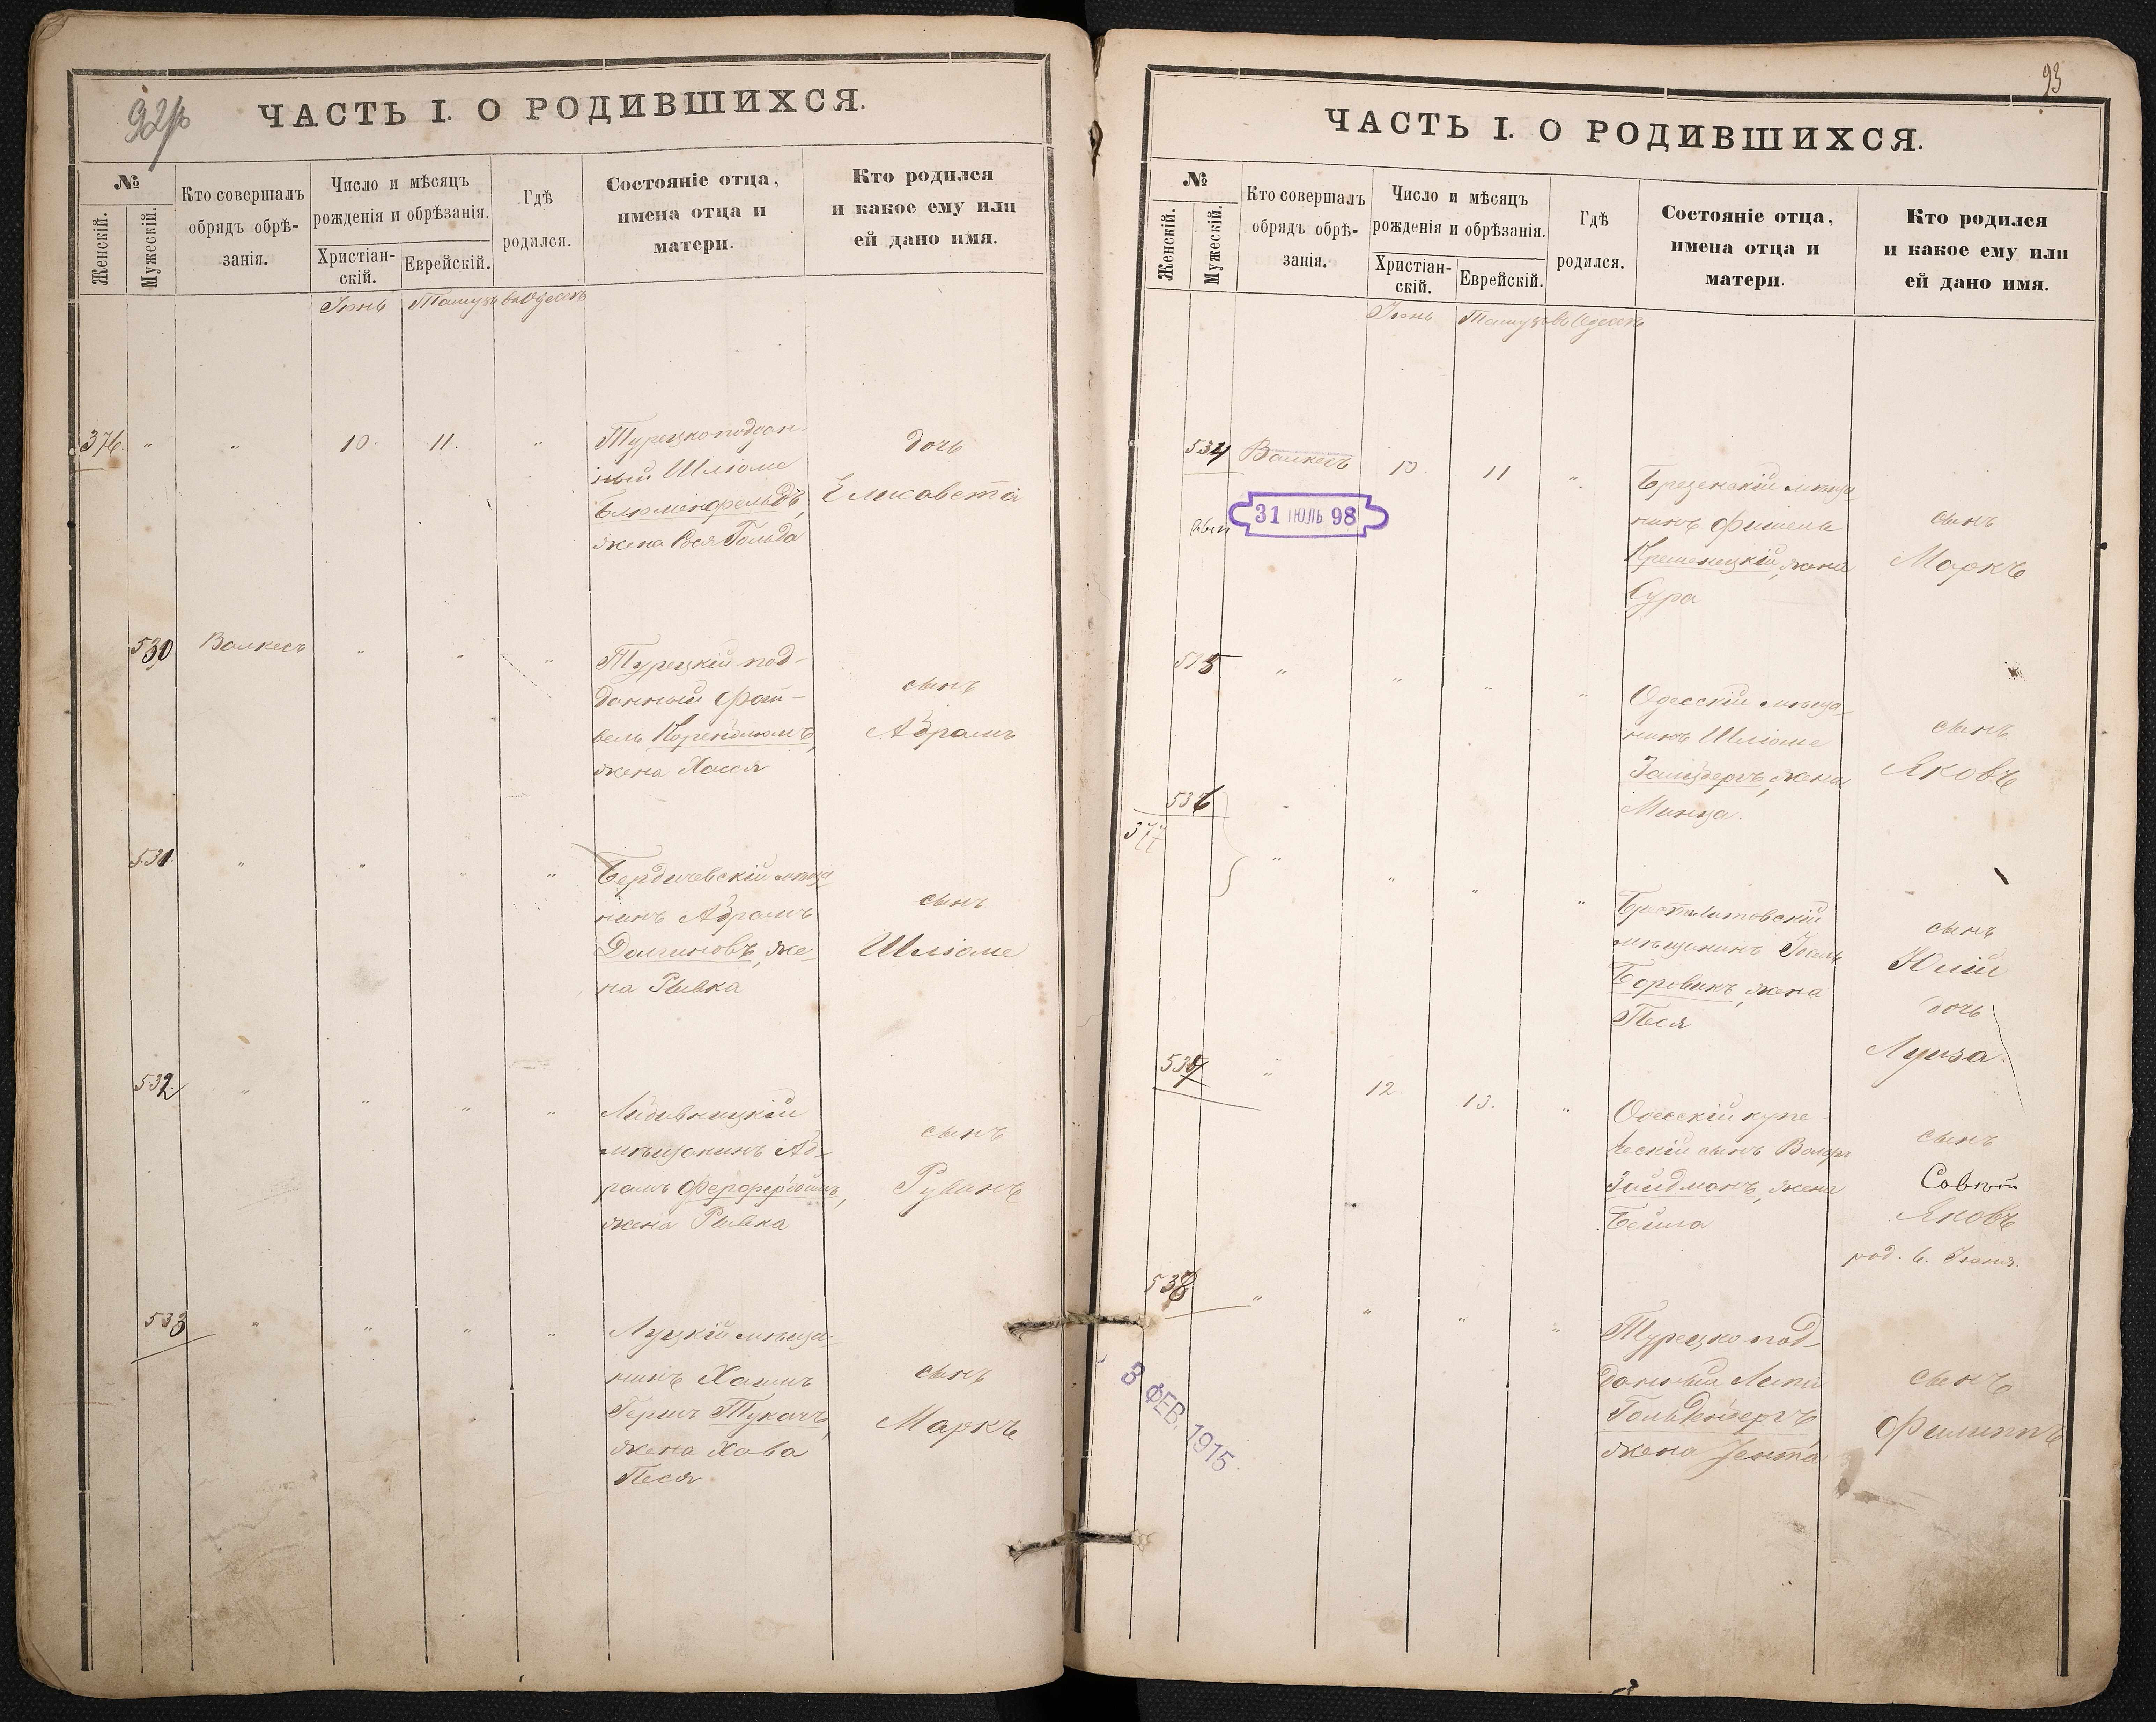 92 об
ЧАСТЬ I. О РОДИВШИХСЯ.
№
Женскій.
Мужескій.
Кто совершалъ
обрядъ обрѣ-
занія.
Число и мѣсяцъ
рожденія и обрѣзанія.
Христіан-
скій.
Еврейскій.
Гдѣ
родился.
Состояніе отца,
имена отца и
матери.
Кто родился
и какое ему или
ей дано имя.
Іюнь Тамузъ въ Одессѣ
376. " " 10. 11. "
Турецкоподдан-
ный Шліоме
Блюменфельдъ,
жена Еся Гольда
дочь
Елисавета
530 Валкесъ " " "
Турецкій под-
данный Фай-
вель Корендлюмъ,
жена Хася
сынъ
Абрамъ
531. " " " "
Бердичевскій мѣща
нинъ Абрамъ
Долгиновъ, же-
на Ривка
сынъ
Шліоме
532. " " " "
мѣщанинъ Аб-
рамъ
жена Ривка
сынъ
Рувинъ
533 " " " "
Луцкій мѣща-
нинъ Хаимъ
Гершъ Тукачъ,
жена Хава
Песя
сынъ
Маркъ
93
ЧАСТЬ I. О РОДИВШИХСЯ.
№
Женскій.
Мужескій.
Кто совершалъ
обрядъ обрѣ-
занія.
Число и мѣсяцъ
рожденія и обрѣзанія.
Христіан-
скій.
Еврейскій.
Гдѣ
родился.
Состояніе отца,
имена отца и
матери.
Кто родился
и какое ему или
ей дано имя.
Іюнь Тамузъ въ Одессѣ
534 Валкесъ 10. 11 "
вып
31 ІЮЛЬ 98
Брезенскій мѣща
нинъ Фишель
Кременецкій, жена
Сура
сынъ
Маркъ
535 " " " "
Одесскій мѣща-
нинъ Шліоме
Зальцбергъ, жена
Минца.
сынъ
Яковъ
536 "
377 " " " "
Брестлитовскій
мѣщанинъ Іось
Боровикъ, жена
Песя
сынъ
Юлій
дочь
Луиза.
537 " 12. 13. "
Одесскій купе-
ческій сынъ Вольфъ
Зайдманъ, жена
Бейла
сынъ
Савѣй
Яковъ
род. 6. Іюня.
538 " " " "
3 ФЕВ. 1915
Турецко под-
данный Липа
Гольденбергъ
жена Јента
сынъ
Филиппъ